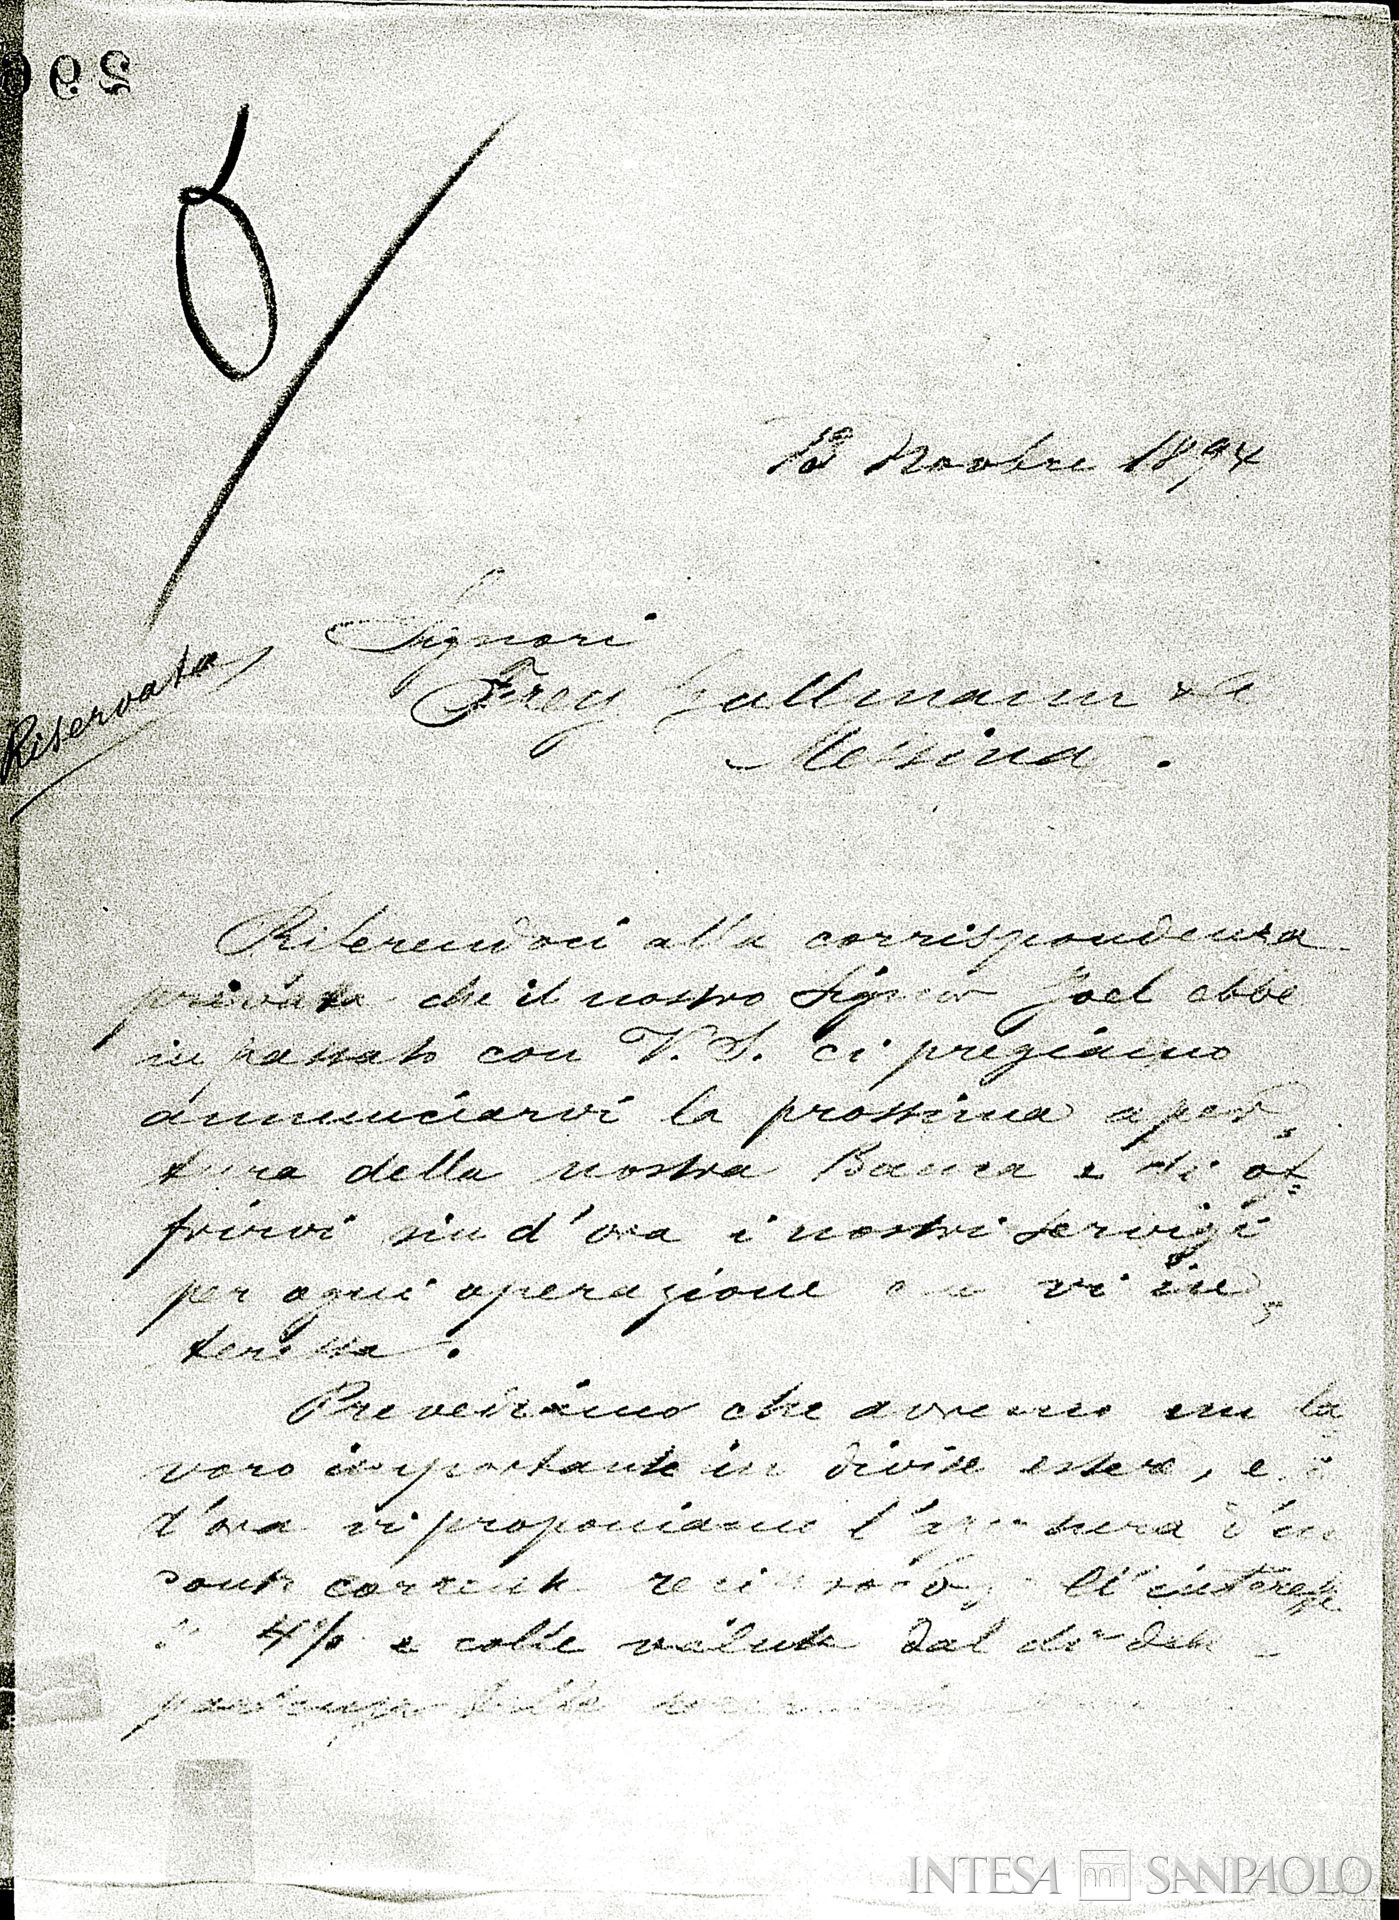 Novbre 1894
Riservata
Signori
Frey Gullmann & Ci
Messina.
Riferendoci alla corrispondenza
privata che il nostro Signor Joel ebbe
in passato con V. S. ci pregiamo
annunciarvi la prossima aper-
tura della nostra Banca e di of-
frirvi sin d'ora i nostri servigi
per ogni operazione che vi in-
teressa.
Prevediamo che avremo un la
voro importante in divise estere, e
d'ora vi proponiamo l'apertura d'un
conto corrente reciproco, all'interesse
4% e colle valute dal dì della
della
INTESA SANPAOLO